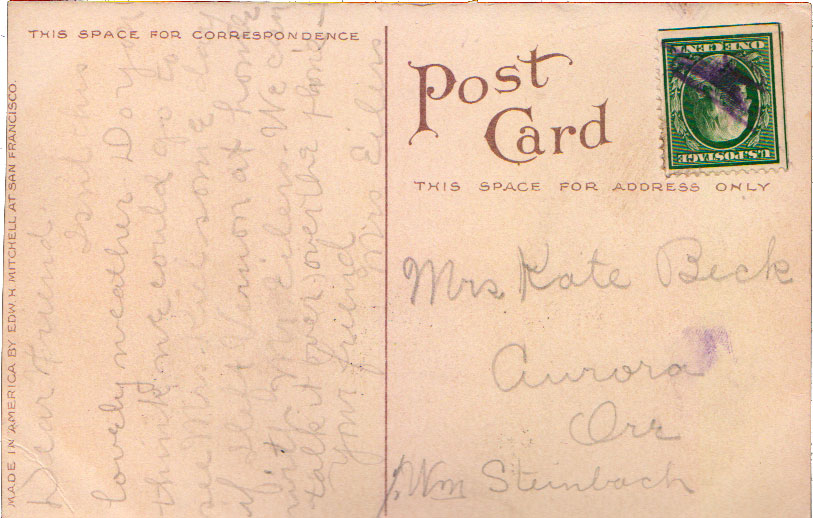 THIS SPACE FOR CORRESPONDENCE
Dear Friend
Isn't this
lovely weather Do you
think we could go to
see Mrs. Kiel some day
if I left Vernon at home
with Mr Eilers. We can
talk it over over the phone
Your friend
Mrs Eilers
MADE IN AMERICA BY EDW. H. MITCHELL AT SAN FRANCISCO.
Post
Card
THIS SPACE FOR ADDRESS ONLY
U.S. POSTAGE
ONE CENT
Mrs. Kate Beck
Aurora
Ore
Wm Steinbach